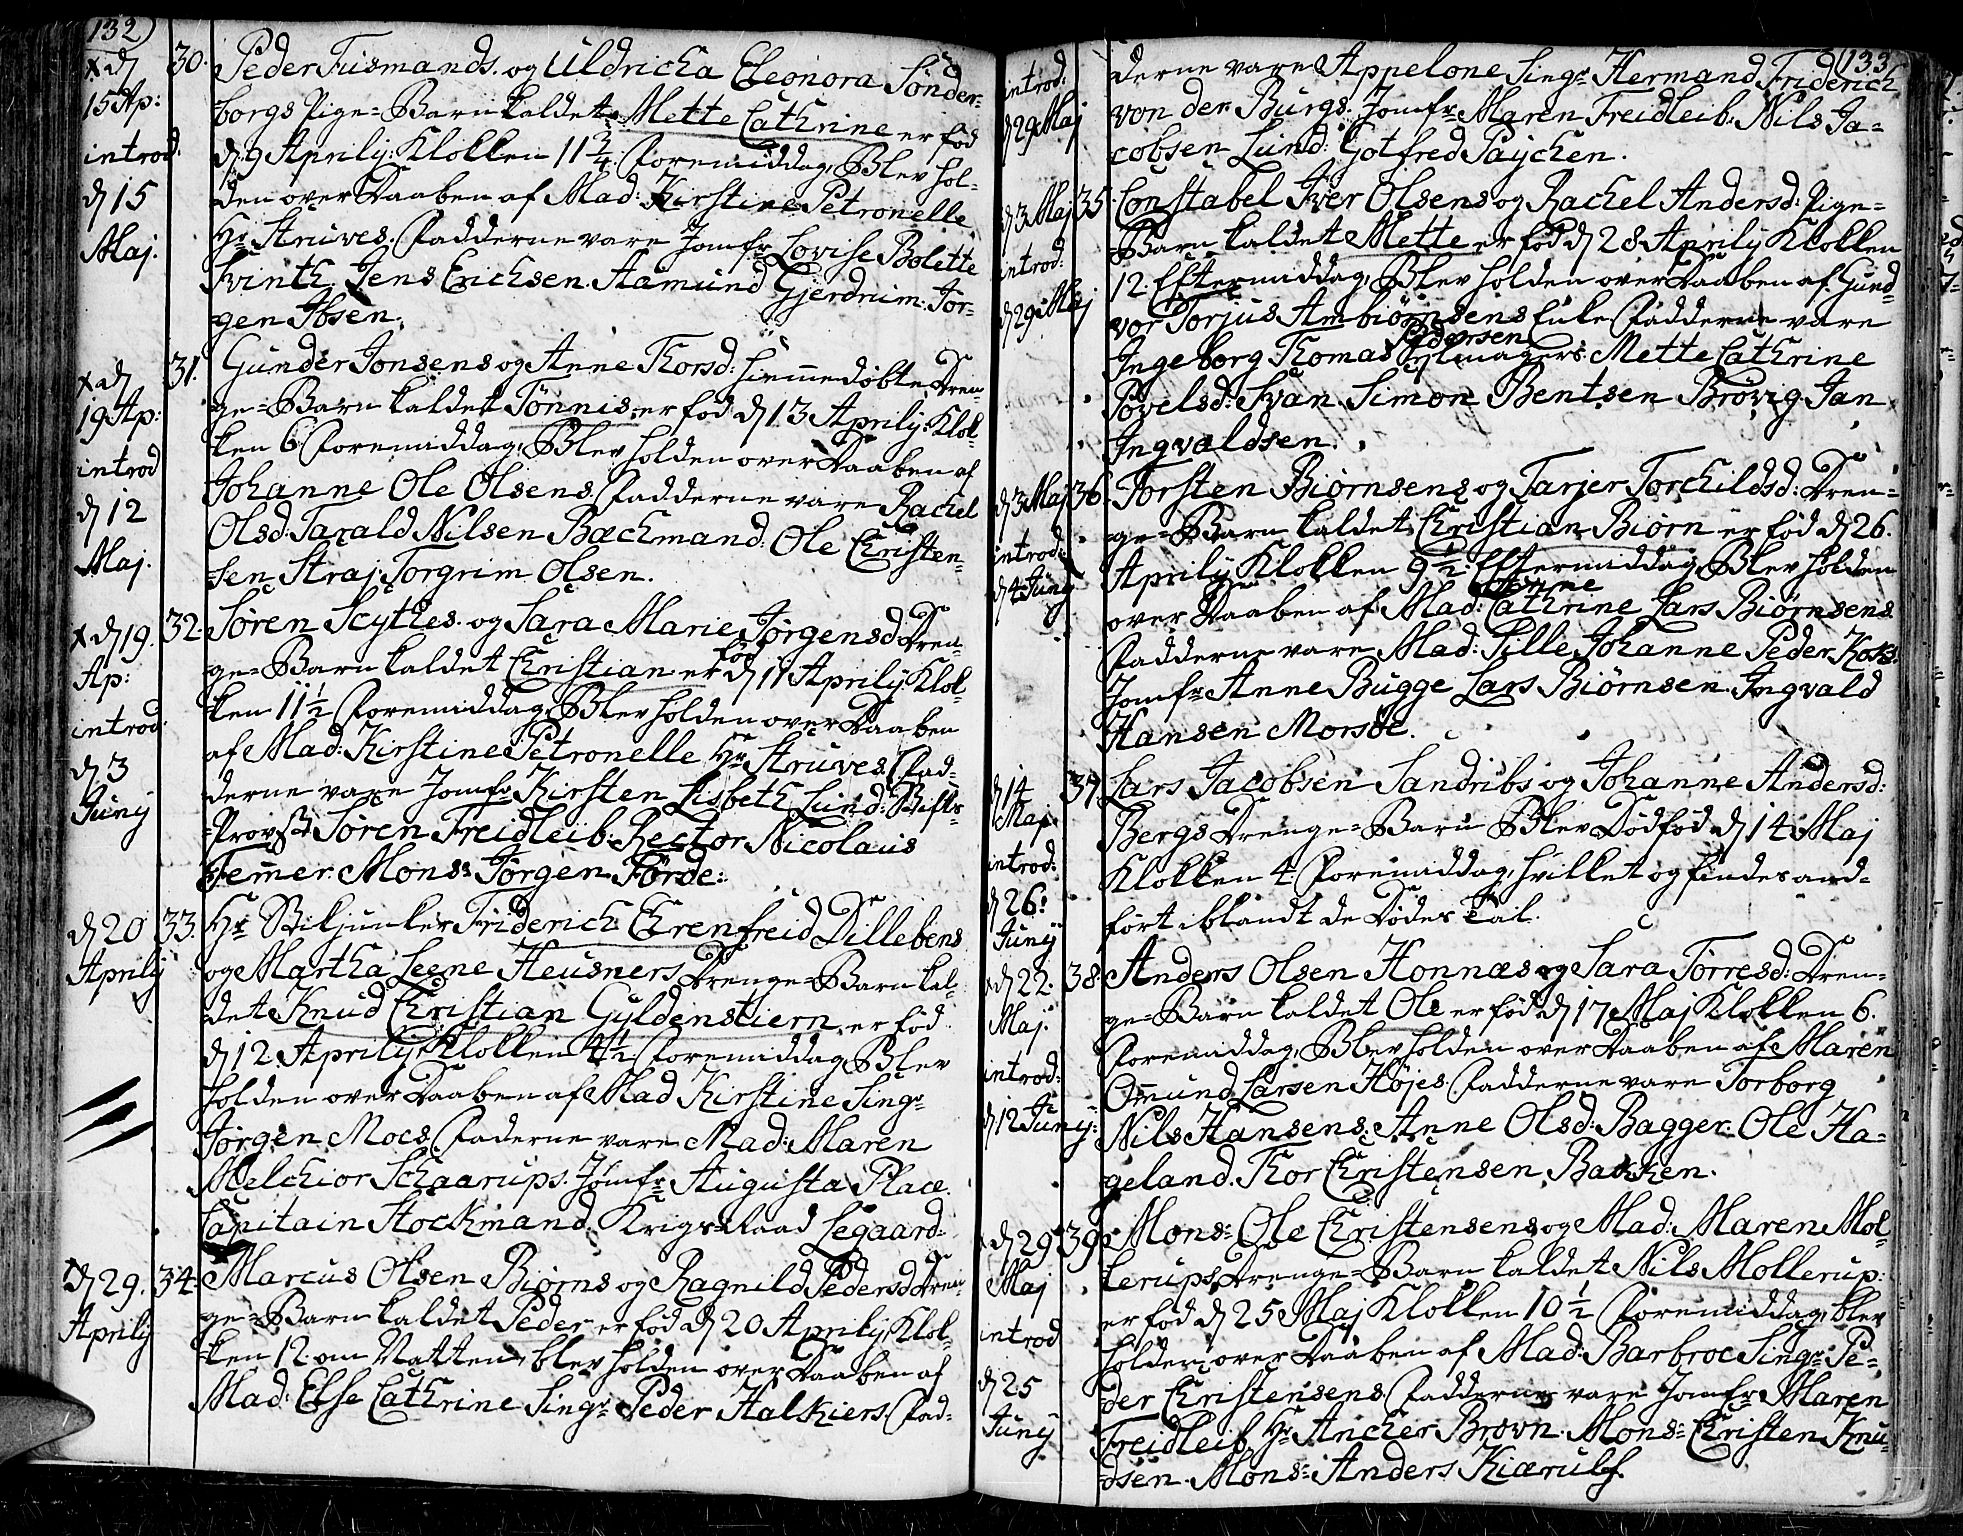 132)
x d 30. Peder Fuusmands. og Uldricha Eleonora Sönder-
15 Ap: borgs Pige-Barn kaldet Mette Cathrine er fød
introd: d 9 Aprilij. Klokken 11 3/4 Foremiddag, Blev hol-
d 15 den over Daaben af Mad: Kirstine Petronelle
Maj. Hr Struves. Fadderne vare Jomfr Lovise Bolette
Kvinth. Jens Erichsen. Aamund Gjerdrum. Jör-
gen Ibsen.
x d 31. Gunder Jonsens og Anne Thorsd: hiemmedøbte Dren-
19 Ap: ge-Barn kaldet Tönnis, er fød d 13 Aprilij. Klok-
introd ken 6 Foremiddag, Blev holden over Daaben af
d 12 Johanne Ole Olsens. Fadderne vare Rachel
Maj. Olsd: Tarald Nilsen Bachmand. Ole Christen-
sen Straj. Torgrim Olsen.
x d 19. 32. Søren Scyttes. og Sara Marie Jørgensd Dren-
Ap: ge-Barn kaldet Christian er fød d 11 Aprilij. Klok-
introd ken 11 1/2 Foremiddag, Blev holden over Daaben
d 3 af Mad: Kirstine Petronelle Hr Struves. Fad-
Junij derne vare Jomfr Kirsten Lisbeth Lund.
Provst Søren Freidleib. Rector Nicolaus
Temer. Mons: Jørgen Förde:
d 20 33. Hr Friderich Ehrenfreid Dillebens
Aprilij og Martha Leene Heusners Drenge-Barn kal-
det Knud Christian Gyldenstiern, er fød
d 12. Aprilij. Klokken 4 1/2 Foremiddag, Blev
holden over Daaben af Mad Kirstine Singr
Jørgen Moes. Faderne vare Mad: Maren
Melchior Schaarups. Jomfr Augusta Place.
Capitain Stockmand. Krigs-Raad Legaard.
d 29. 34. Marcus Olsen Biørns og Ragnild Pedersd Dren-
Aprilij ge-Barn kaldet Peder er fød d 20 Aprilij, Klok-
ken 12 om Natten, blev holden over Daaben af
Mad: Else Cathrine Singr Peder Halkiers. Fad-
133
introd: derne vare Appelone Singr Hermand Friderich
d 29 Maj von der Burgs. Jomfr Maren Freidleib. Nils Ja-
cobsen Lund. Gotfred Paÿchen.
d 3 Maj 35. Constabel Iver Olsens og Rachel Andersd: Pige-
introd: Barn kaldet Mette er fød d 28 Aprilij Klokken
d 29 Maj 12. Eftermiddag, Blev holden over Daaben af Gund-
vor Torjus Ambiörnsens Enke. Fadderne vare
Ingeborg Thomas Pedersen. Mette Cathrine
Povelsd: Svan. Simon Bentsen Brövig. Jan
Ingvaldsen.
d 3 Maj 36. Torsten Biørnsens og Tarjer Torchildsd: Dren-
introd: ge-Barn kaldet Christian Biørn er fød d 26.
d 4 Junij Aprilij Klokken 9 1/2 Eftermiddag, Blev holden
over Daaben af Mad: Cathrine Lars Biørnsens
Fadderne vare Mad: Pille Johanne Peder Koks.
Jomfr Anne Bugge. Lars Biørnsen. Ingvald
Hansen Morsöe.
d 14 37. Lars Jacobsen Sandribs og Johanne Andersd:
Maj: Bergs Drenge-Barn Blev Dødfød d 14 Maj
introd: Klokken 4 Foremiddag, hvillet og findes and-
d 26: ført iblandt de Dödes Tal.
Junij
x d 22. 38. Anders Olsen Honnæs og Sara Törresd: Dren-
Maj. ge-Barn kaldet Ole er fød d 17 Maj Klokken 6.
Foremiddag, Blev holden over Daaben af Maren
introd: Omund Larsen Höjes Fadderne vare Torborg
d 12 Junij: Nils Hansens. Anne Olsd: Bagger. Ole Ha-
geland. Thor Christensen Bakken.
d 29 39. Mons: Ole Christensens og Mad: Maren Mol-
Maj lerups Drenge-Barn kaldet Nils Mollerup.
introd er fød d 25 Maj Klokken 10 1/2 Foremiddag, blev
holden over Daaben af Mad: Barbroe Singr Pe-
d 25 der Christensens. Fadderne vare Jomfr Maren
Junij Freidleib, Hr Ancher Brown. Mons: Christen Knu-
dsen. Mons: Anders Kiærulf.